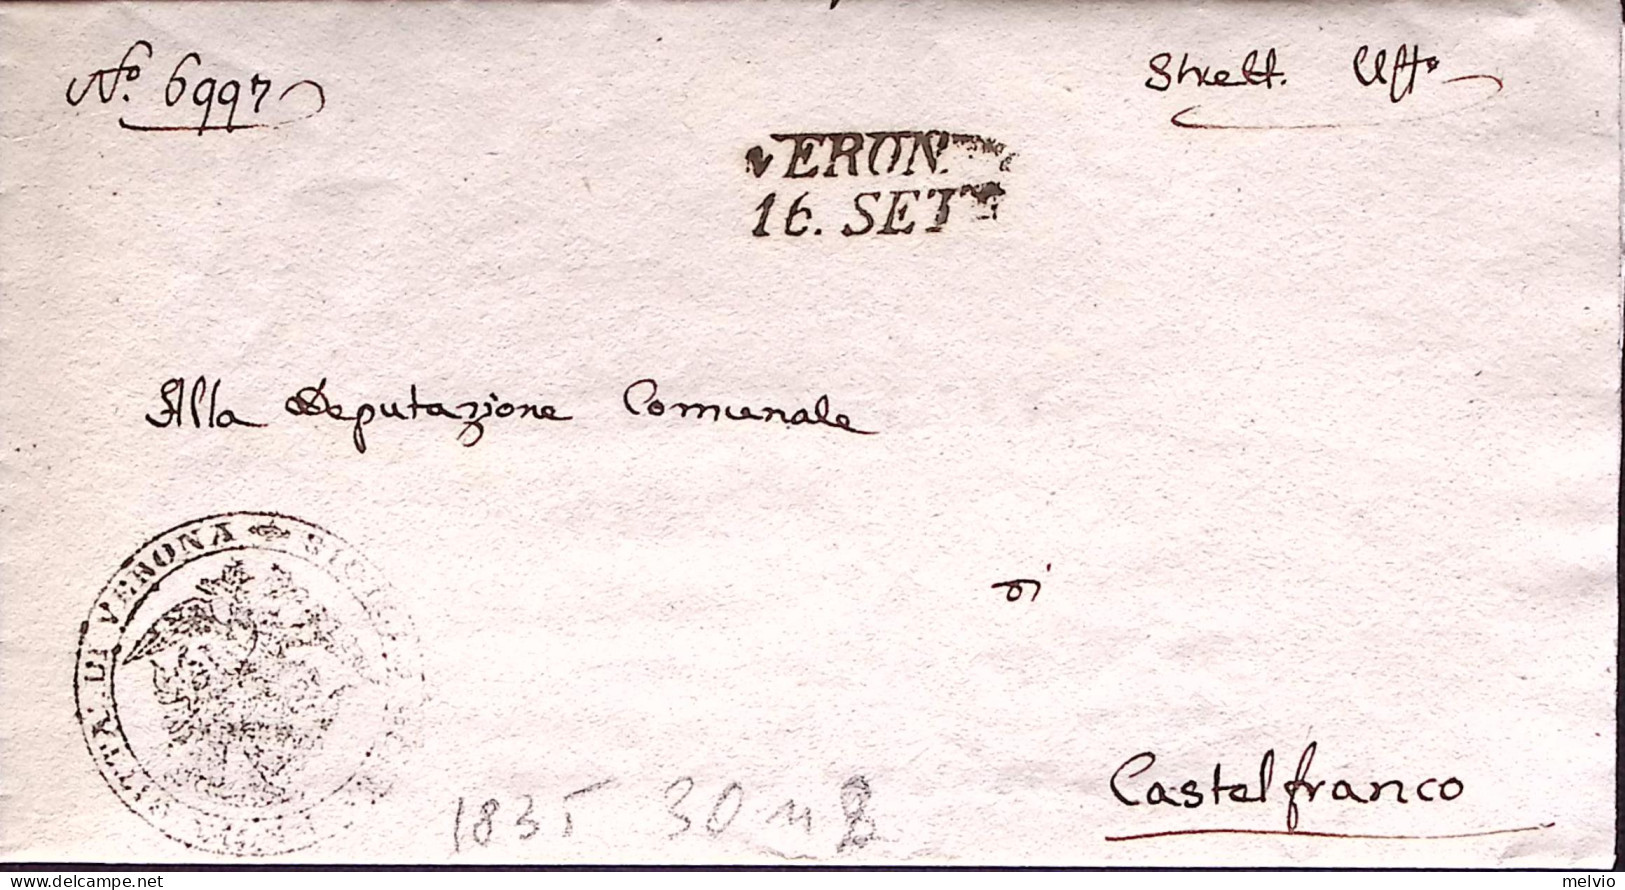 Nº. 6997
Strett. Uffº
VERON
16. SETT
Alla Deputazione Comunale
di
Castelfranco
CITTA' DI VERONA
1835 30
melvio